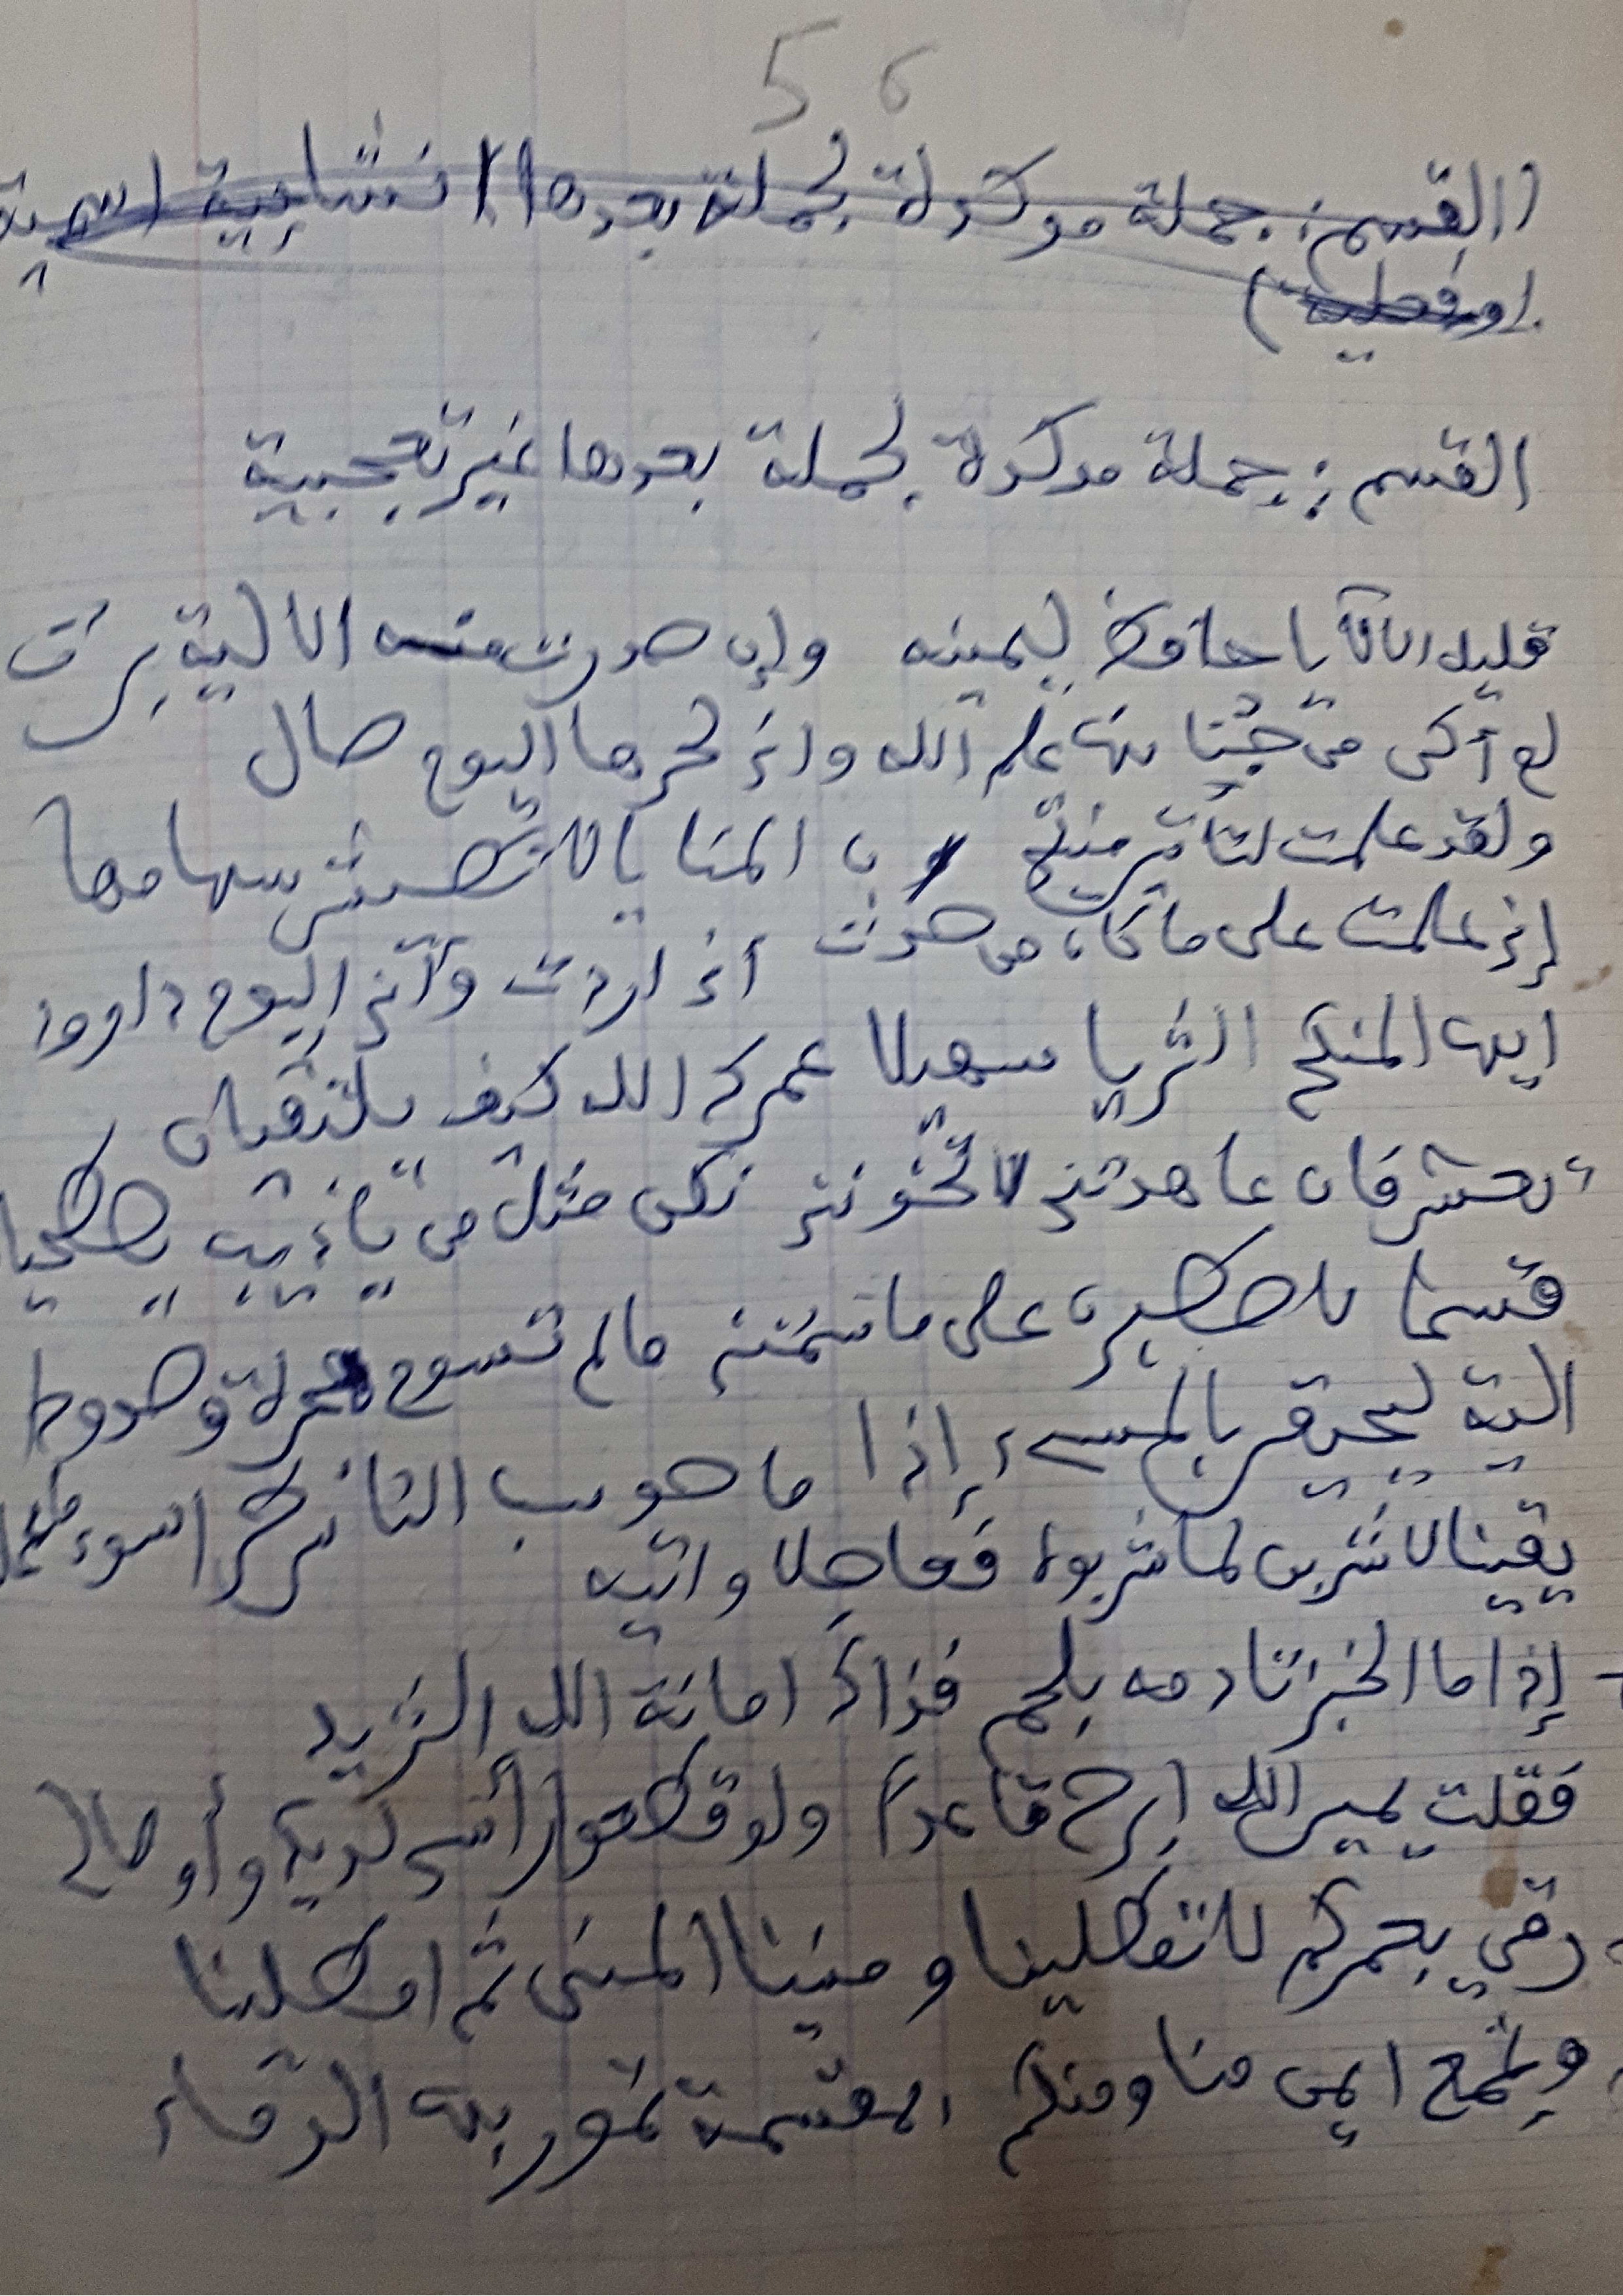 5 6
(القسم: جملة موكدة لجملة بعدها إنشائية اسمية
أو فعلية)
القسم: جملة موكدة لجملة بعدها غير تعجبية
قليل الألايا حافظ ليمينه وإن صدرت منه الألية برت
لم أكن من جناتها علم الله وإني لحرها اليوم صال
ولقد علمت لتأتين منيتي إن المنايا لا تطيش سهامها
إني علمت على ما كان من
أيها المنكح الثريا سهيلا عمرك الله كيف يلتقيان
تعش فإن عاهدتني لا تخونني نكن مثل من يا ذيب يصطحبان
قسما لأصطبرن على ما سمتني ما لم تسومي هجرة وصدودا
ألية ليحيقن بالمسيء إذا ما حوسب الناس طرا سوء ما عملا
يقينا لأشربن لما شربوه فعاصلا واتيه
- إذا ما الخبز تادمه بلحم فذاك أمانة الله الثريد
فقلت يمين الله أبرح قاعدا ولو قطعوا رأسي لديك وأوصالي
رقي بعمركم لا تمطلينا ومنينا المنى ثم امطلينا
وتجمع ايمن منا ومنكم بمقسمة تمور بها الدماء